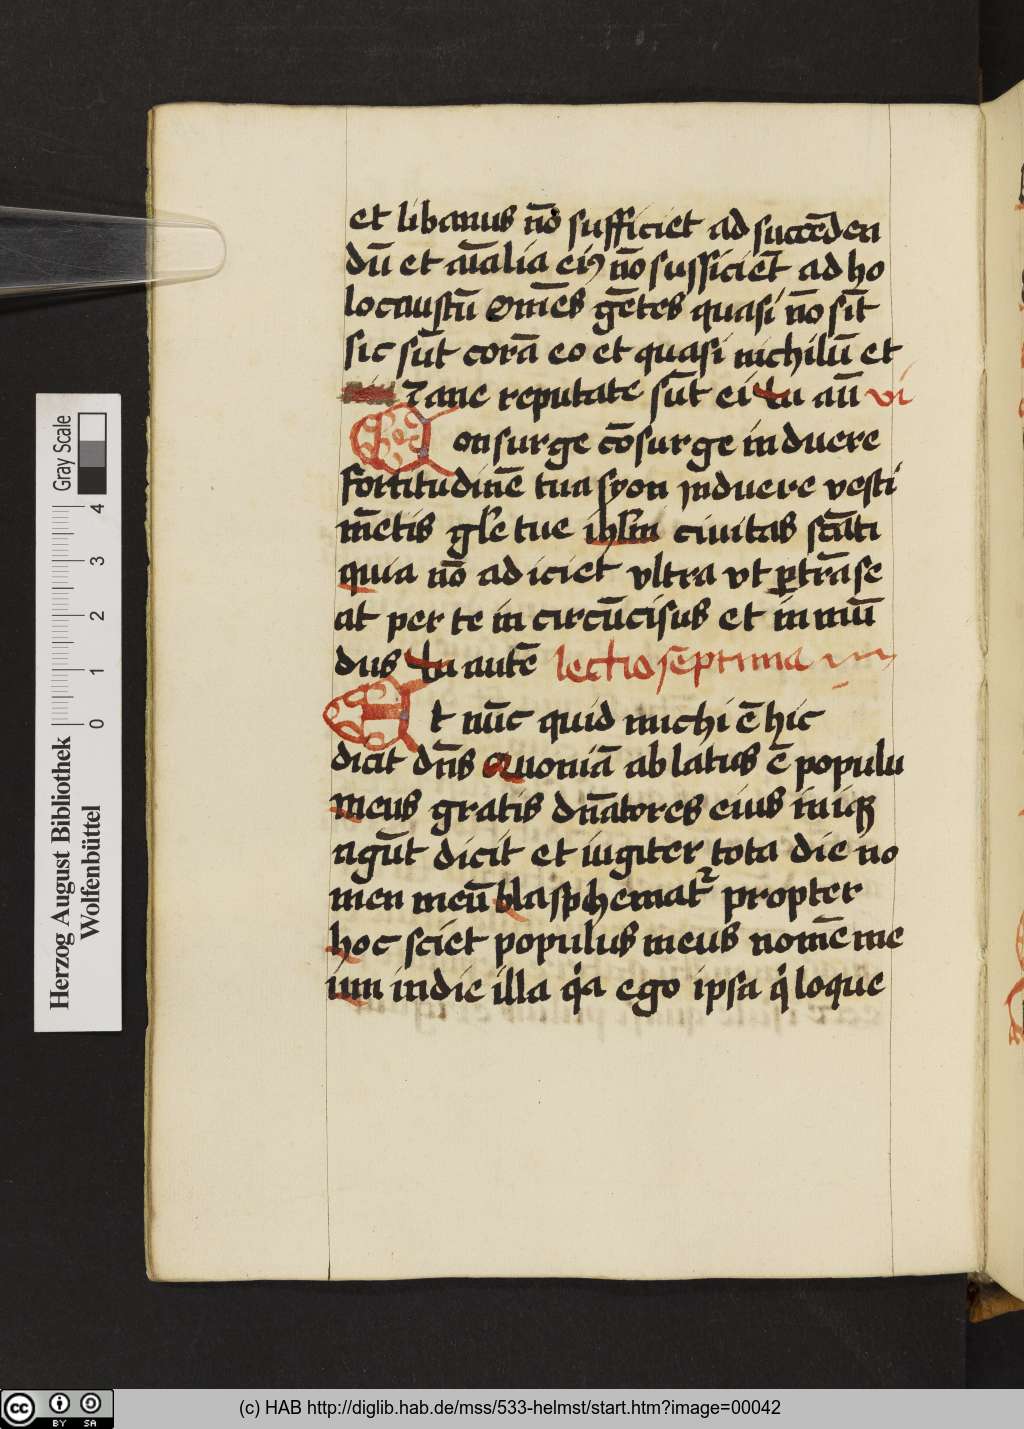 et libanus nō sufficiet ad succēden
dū et aīalia eiꝰ nō sufficiēt ad ho
locaustū Om̄es gētes quasi nō sīt
sic sūt corā eo et quasi nichilū et
⁊ ane reputate sūt ei tu aū vi
Consurge cōsurge induere
fortitudinē tua syon induere vesti
mētis gl̄e tue ihl̄m ciuitas sc̄āti
quia nō adiciet vltra vt ꝑtrāse
at per te in circūcisus et in mū
dus tu autē lectio septima
Et nūc quid michi ē hic
dicit dn̄s Quoniā ablatus ē populu
meus gratis dn̄atores eius iniqꝫ
agūt dicit et iugiter tota die no
men meū blasphematᷣ propter
hoc sciet populus meus nomē me
um in die illa qͥa ego ipsa qͥ loque
Gray Scale
4
3
2
1
0
Herzog August Bibliothek
Wolfenbüttel
cc BY SA
(c) HAB http://diglib.hab.de/mss/533-helmst/start.htm?image=00042